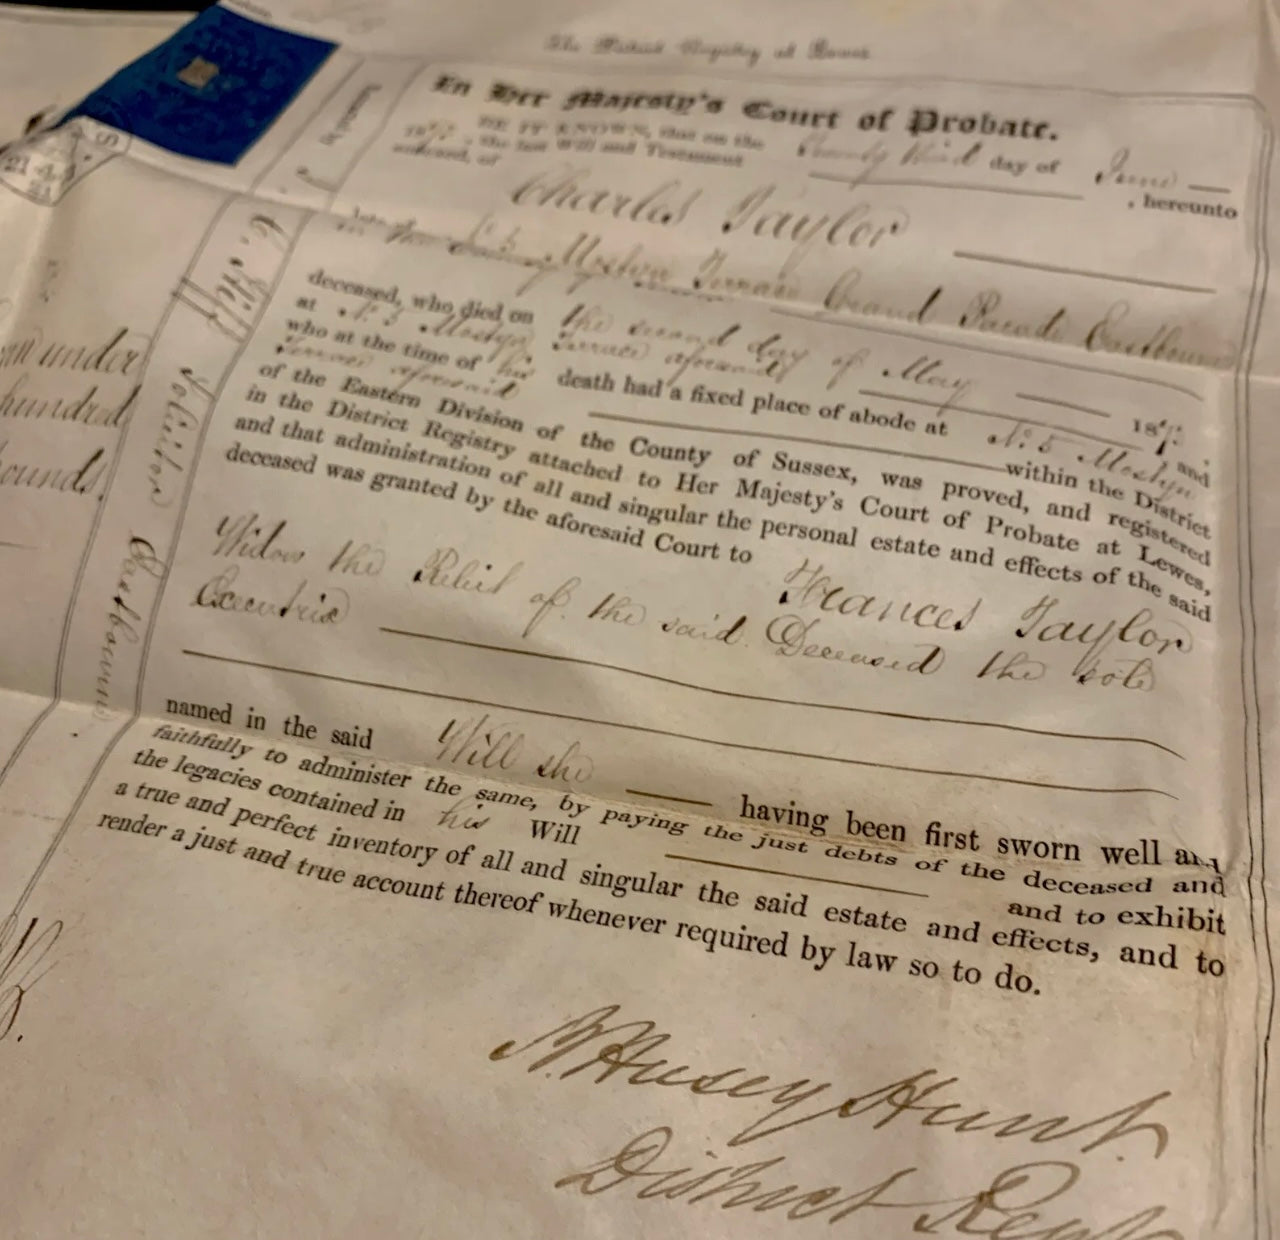 The District Registry at Lewes
In Her Majesty's Court of Probate.
BE IT KNOWN, that on the Twenty third day of June
18 , the last Will and Testament , hereunto
annexed, of
Charles Taylor
late of No. 5 Mostyn Terrace Grand Parade Eastbourne
in the County
deceased, who died on the second day of May 187
at No. 5 Mostyn Terrace aforesaid and
who at the time of his death had a fixed place of abode at No. 5 Mostyn
Terrace aforesaid within the District
of the Eastern Division of the County of Sussex, was proved, and registered
in the District Registry attached to Her Majesty's Court of Probate at Lewes,
and that administration of all and singular the personal estate and effects of the said
deceased was granted by the aforesaid Court to Frances Taylor
Widow the Relict of the said Deceased the sole
Executrix
named in the said Will she having been first sworn well and
faithfully to administer the same, by paying the just debts of the deceased and
the legacies contained in his Will and to exhibit
a true and perfect inventory of all and singular the said estate and effects, and to
render a just and true account thereof whenever required by law so to do.
Husey Hunt
District
Solicitor Eastbourne
under
hundred
ounds.
21 4